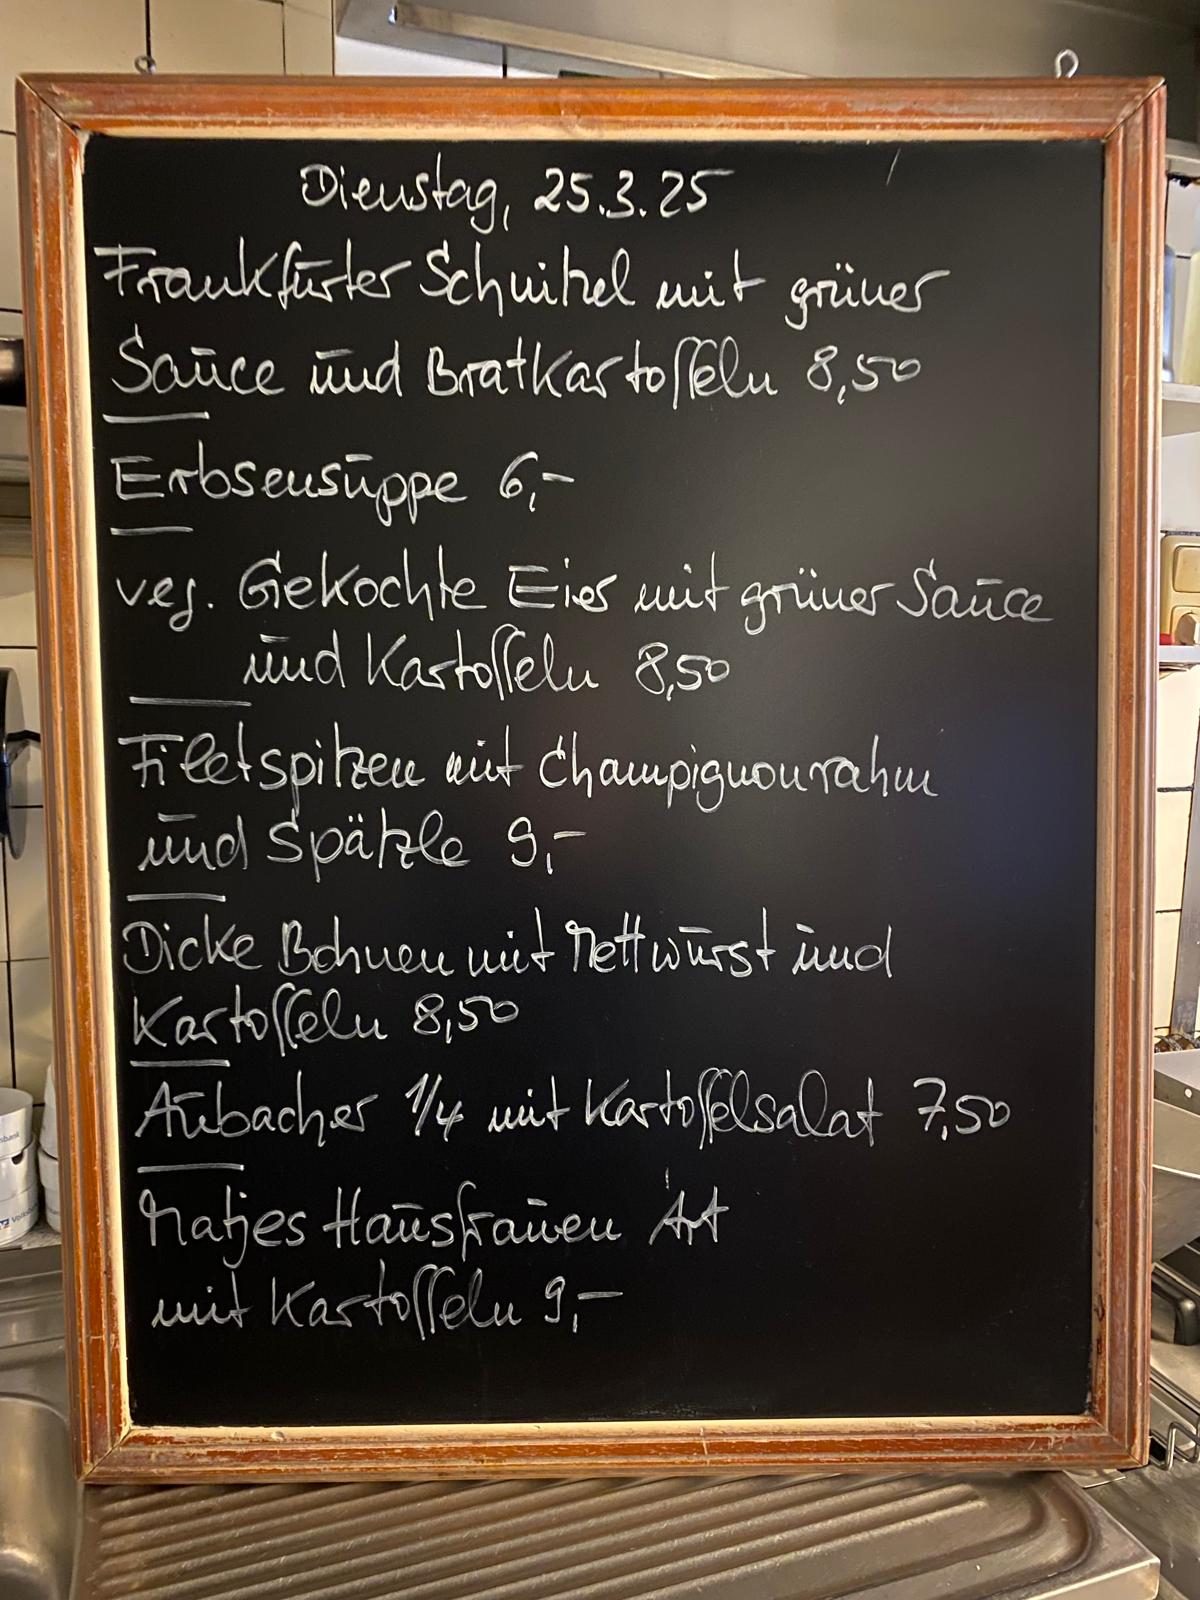 Dienstag, 25.3.25
Frankfurter Schnitzel mit grüner
Sauce und Bratkartoffeln 8,50
Erbsensuppe 6,-
veg. Gekochte Eier mit grüner Sauce
und Kartoffeln 8,50
Filetspitzen mit Champignonrahm
und Spätzle 9,-
Dicke Bohnen mit Mettwurst und
Kartoffeln 8,50
Aubacher 1/4 mit Kartoffelsalat 7,50
Matjes Hausfrauen Art
mit Kartoffeln 9,-